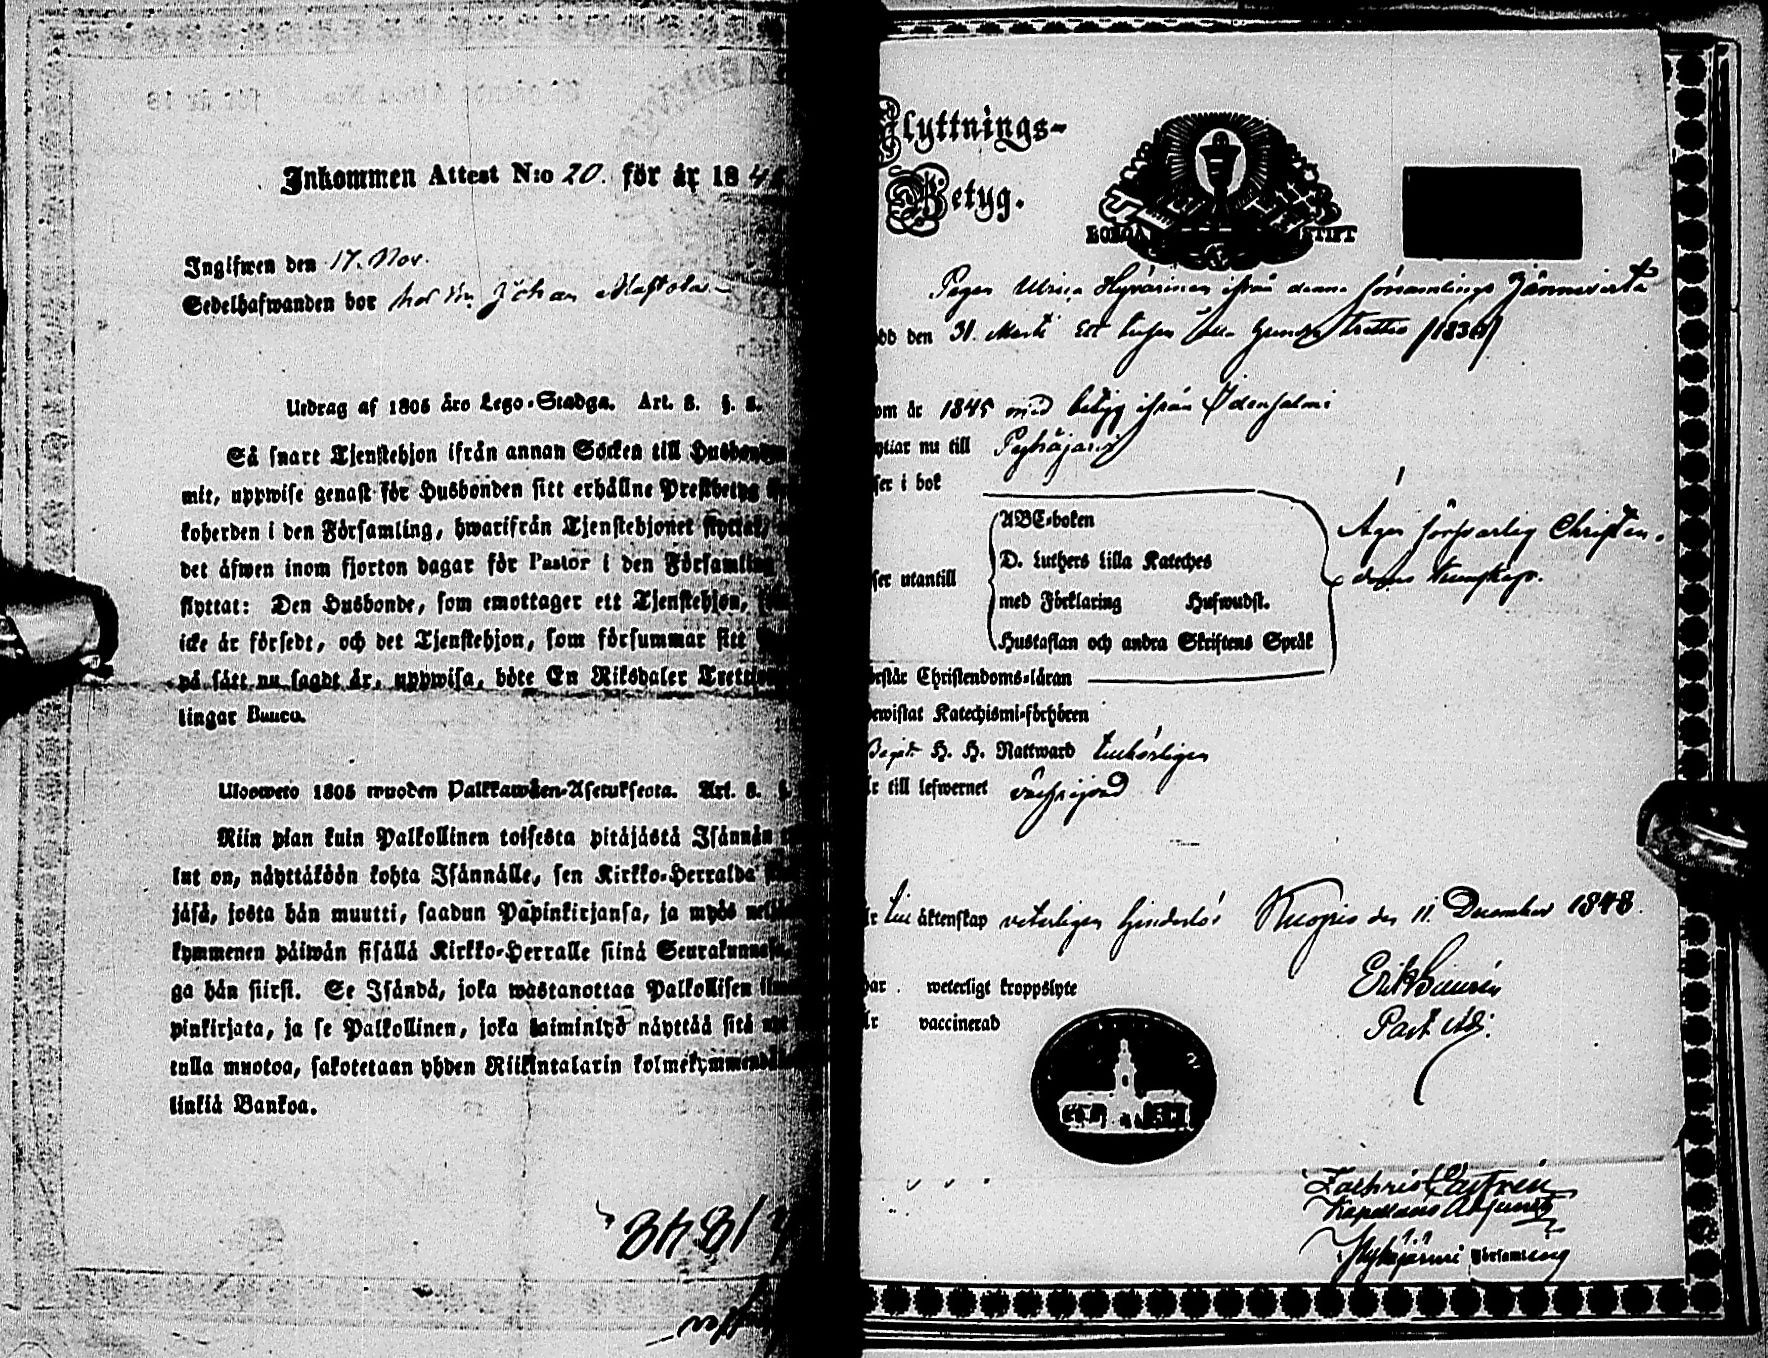 Inkommen Attest N:o 20. för år 18 4
Inglfwen den 17. Nov.
Sedelhafwanden bor hos Johan
Utdrag af 1805 års Lego-Stadga. Art. 8. §. 8.
Så snart Tjenstehjon ifrån annan Socken till Husbonden
mit, uppwise genast för Husbonden sitt erhållne Prestbetyg
koherden i den Församling, hwarifrån Tjenstehjonet flyttat,
det åfwen inom fjorton dagar för Pastor i den Församling
flyttat: Den Husbonde, som emottager ett Tjenstehjon,
icke år försedt, och det Tjenstehjon, som försummar sitt
på sått nu sagdt år, uppwisa, böte En Riksdaler Trettio
lingar Banco.
Ulosweto 1805 wuoden Palkkawäen-Asetuksesta. Art. 8. §.
Niin pian kuin Palkollinen toisesta pitäjästä Isännän
lut on, näyttäköön kohta Isännälle, sen Kirkko-Herralda
jäsä, josta hän muutti, saadun Papinkirjansa, ja myös nel
kymmenen päiwän sisällä Kirkko-Herralle siinä Seurakunna
ga hän siirsi. Se Isändä, joka wastanottaa Palkollisen il
pinkirjata, ja se Palkollinen, joka laiminlyö näyttää sitä
tulla muotoa, sakotetaan yhden Riikintalarin kolmekymmen
linkiä Bankoa.
1848
Flyttnings-
Betyg.
BORGÅ STIFT
Pigan Ulrica Hyvärinen ifrån denna församlings Jännevirta
dd den 31. Marti Ett tusen åtta hundra trettio /1830/
om år 1845 med betyg ifrån Idensalmi
yttar nu till Pyhäjärvi
ser i bok
ser utantill
ABC-boken
D. Luthers lilla Kateches
med Förklaring Hufwudst.
Hustaflan och andra Skriftens Språk
Äger försvarlig Christen-
doms Kunskap.
örstår Christendoms-läran
ewistat Katechismi-förhören
Begåt. H. H. Nattward tillbörligen
r till lefwernet oberyktad
r till äktenskap veterligen hinderlös Kuopio den 11. December 1848.
har weterligt kroppslyte
r vaccinerad
Past. Adj.
Zachris Castrén
Kapellans Adjunkt
i Pyhäjärvi Församling